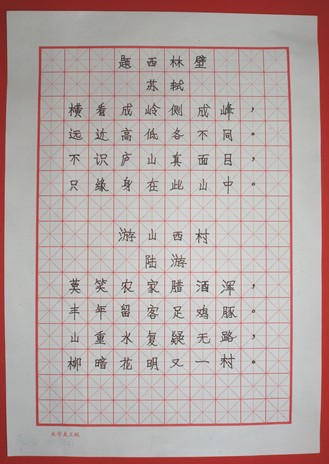 题西林壁
苏轼
横看成岭侧成峰，
远近高低各不同。
不识庐山真面目，
只缘身在此山中。
游山西村
陆游
莫笑农家腊酒浑，
丰年留客足鸡豚。
山重水复疑无路，
柳暗花明又一村。